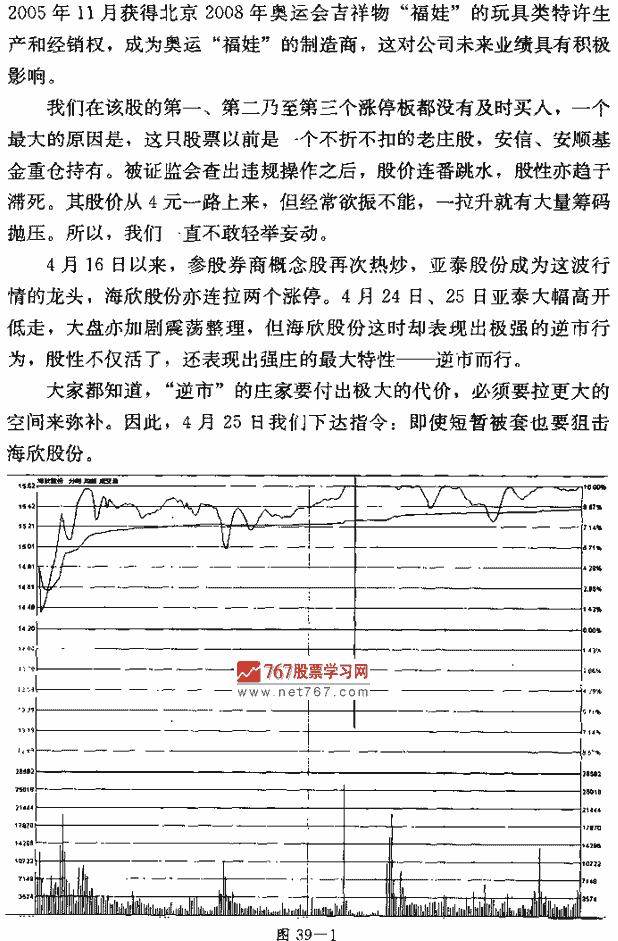 2005年11月获得北京2008年奥运会吉祥物“福娃”的玩具类特许生
产和经销权，成为奥运“福娃”的制造商，这对公司未来业绩具有积极
影响。
我们在该股的第一、第二乃至第三个涨停板都没有及时买入，一个
最大的原因是，这只股票以前是一个不折不扣的老庄股，安信、安顺基
金重仓持有。被证监会查出违规操作之后，股价连番跳水，股性亦趋于
滞死。其股价从4元一路上来，但经常欲振不能，一拉升就有大量筹码
抛压。所以，我们一直不敢轻举妄动。
4月16日以来，参股券商概念股再次热炒，亚泰股份成为这波行
情的龙头，海欣股份亦连拉两个涨停。4月24日、25日亚泰大幅高开
低走，大盘亦加剧震荡整理，但海欣股份这时却表现出极强的逆市行
为，股性不仅活了，还表现出强庄的最大特性——逆市而行。
大家都知道，“逆市”的庄家要付出极大的代价，必须要拉更大的
空间来弥补。因此，4月25日我们下达指令：即使短暂被套也要狙击
海欣股份。
海欣股份 分时 均线 成交量
15.62 10.00%
15.42 8.57%
15.21 7.14%
15.01 5.71%
14.81 4.28%
14.61 2.85%
14.40 1.42%
14.20 0.00%
1.42%
2.85%
4.28%
5.71%
7.14%
8.57%
767股票学习网
www.net767.com
28592 28592
25018 25018
21444 21444
17870 17870
14296 14296
10722 10722
7148 7148
3574 3574
图 39—1